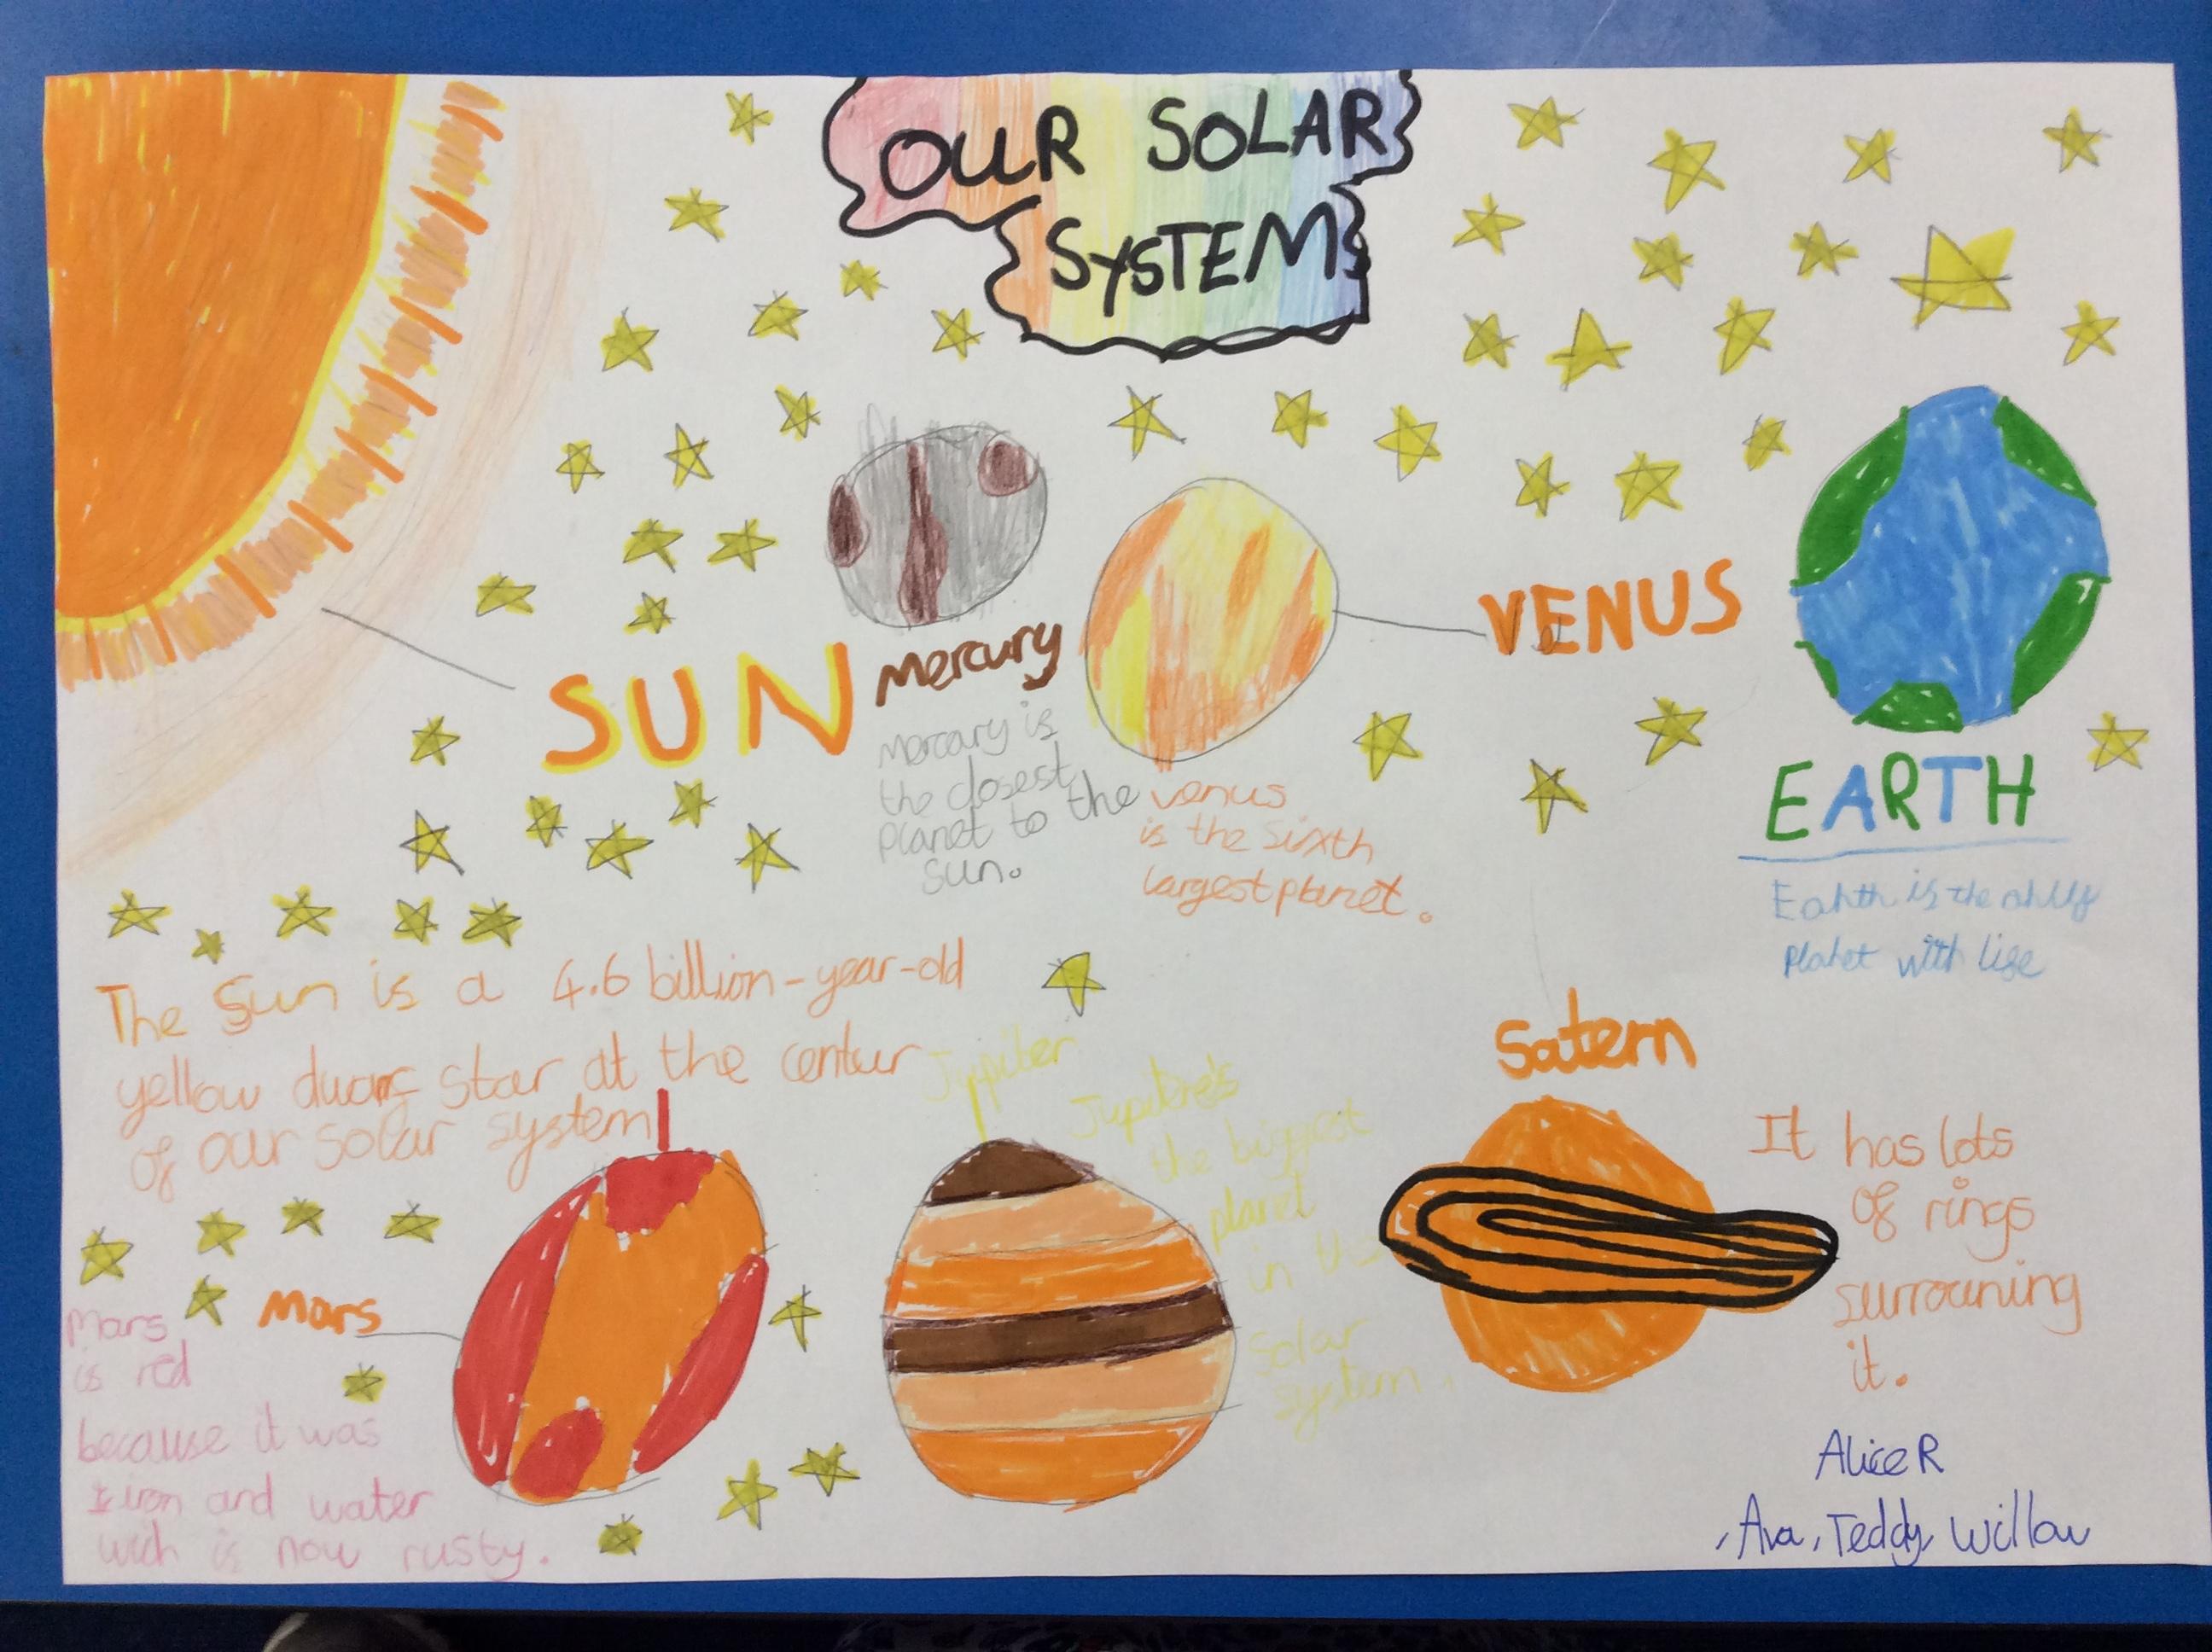 OUR SOLAR
SYSTEM
SUN
Mercury
Mercary is
the closest
planet to the
sun.
VENUS
venus
is the sixth
largest planet.
EARTH
Eahth is the
planet with life
The Sun is a 4.6 billion-year-old
yellow dwarf star at the centur
of our solar system
Mars
Mars
is red
because it was
iron and water
wich is now rusty.
Jypiter
Jupitere's
the biggest
planet
in the
Solar
system.
Satern
It has lots
of rings
surrouning
it.
Alice R
, Ava, Teddy, Willow